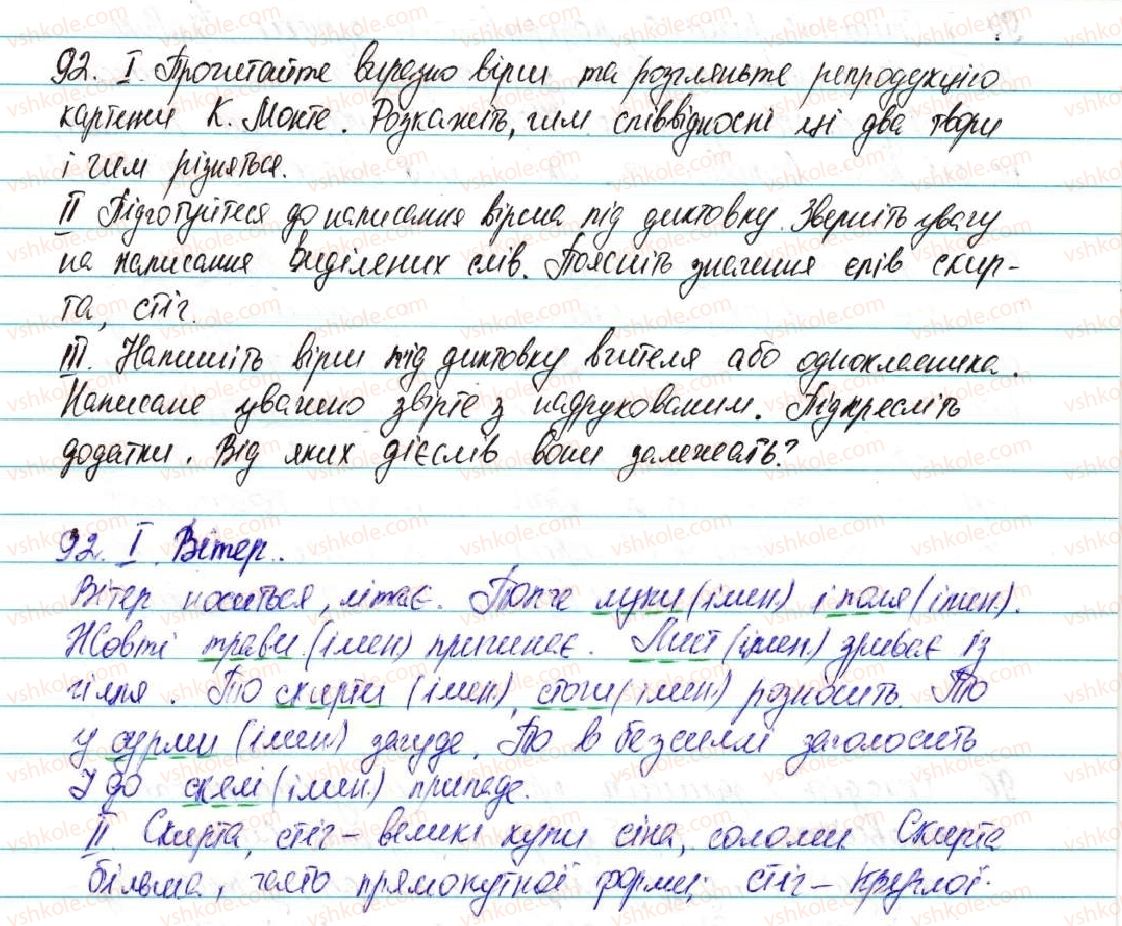 92. I. Прочитайте виразно вірш та розгляньте репродукцію
картини К. Моне. Розкажіть, чим співвідносні ці два твори
і чим різняться.
II Підготуйтеся до написання вірша під диктовку. Зверніть увагу
на написання виділених слів. Поясніть значення слів скир-
та, стіг.
III. Напишіть вірш під диктовку вчителя або однокласника.
Написане уважно звірте з надрукованим. Підкресліть
додатки. Від яких дієслів вони залежать?
92. I. Вітер.
Вітер носиться, літає. Топче луки (імен.) і поля (імен).
Жовті трави (імен) пригинає. Лист (імен) зриває із
гілля. То скирти (імен), стоги (імен) розносить. То
у сурми (імен) загуде, То в безсиллі заголосить
І до скелі (імен.) припаде.
II. Скирта, стіг – великі купи сіна, соломи. Скирта
більша, часто прямокутної форми; стіг – круглої.